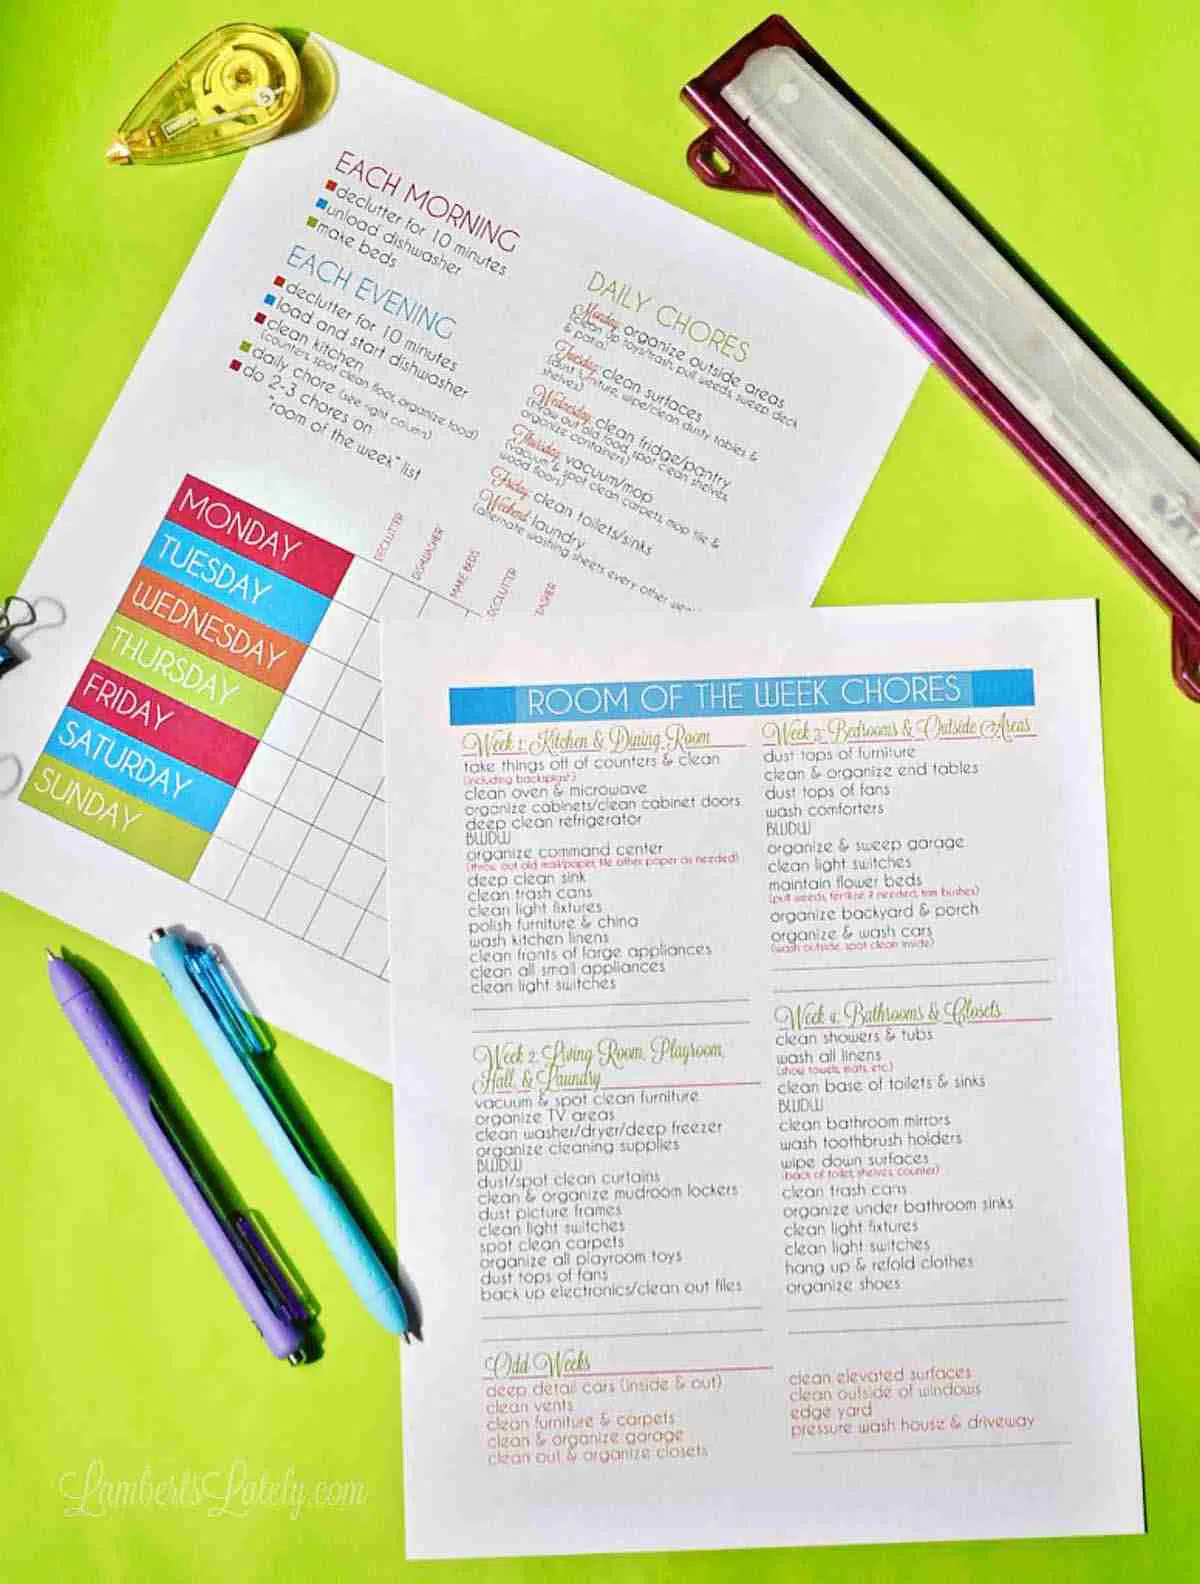 EACH MORNING
declutter for 10 minutes
unload dishwasher
make beds
EACH EVENING
declutter for 10 minutes
load and start dishwasher
clean kitchen
(counters, spot clean floor, organize food)
daily chore (see right column)
do 2-3 chores on
"room of the week" list
DAILY CHORES
Monday: organize outside areas
(clean up toys/trash, pull weeds, sweep deck
& patio)
Tuesday: clean surfaces
(dust furniture, wipe/clean dusty tables &
shelves)
Wednesday: clean fridge/pantry
(throw out old food, spot clean shelves,
organize containers)
Thursday: vacuum/mop
(vacuum & spot clean carpets, mop tile &
wood floors)
Friday: clean toilets/sinks
Weekend: laundry
(alternate washing sheets every other
DECLUTTER
DISHWASHER
MAKE BEDS
DECLUTTER
MONDAY
TUESDAY
WEDNESDAY
THURSDAY
FRIDAY
SATURDAY
SUNDAY
ROOM OF THE WEEK CHORES
Week 1: Kitchen & Dining Room
take things off of counters & clean
(including backsplash)
clean oven & microwave
organize cabinets/clean cabinet doors
deep clean refrigerator
BWDW
organize command center
(throw out old mail/paper, file other paper as needed)
deep clean sink
clean trash cans
clean light fixtures
polish furniture & china
wash kitchen linens
clean fronts of large appliances
clean all small appliances
clean light switches
Week 2: Living Room, Playroom,
Hall, & Laundry
vacuum & spot clean furniture
organize TV areas
clean washer/dryer/deep freezer
organize cleaning supplies
BWDW
dust/spot clean curtains
clean & organize mudroom lockers
dust picture frames
clean light switches
spot clean carpets
organize all playroom toys
dust tops of fans
back up electronics/clean out files
Week 3: Bedrooms & Outside Areas
dust tops of furniture
clean & organize end tables
dust tops of fans
wash comforters
BWDW
organize & sweep garage
clean light switches
maintain flower beds
(pull weeds, fertilize if needed, trim bushes)
organize backyard & porch
organize & wash cars
(wash outside, spot clean inside)
Week 4: Bathrooms & Closets
clean showers & tubs
wash all linens
(show towels, mats, etc.)
clean base of toilets & sinks
BWDW
clean bathroom mirrors
wash toothbrush holders
wipe down surfaces
(back of toilet, shelves, counter)
clean trash cans
organize under bathroom sinks
clean light fixtures
clean light switches
hang up & refold clothes
organize shoes
Odd Weeks
deep detail cars (inside & out)
clean vents
clean furniture & carpets
clean & organize garage
clean out & organize closets
clean elevated surfaces
clean outside of windows
edge yard
pressure wash house & driveway
LambertsLately.com